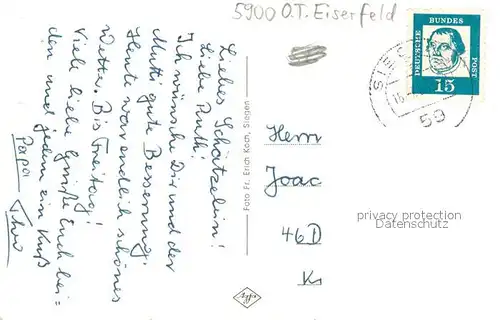 5900 O.T. Eiserfeld
Liebes Schätzelein!
Liebe Ruth!
Ich wünsche Dir und der
Mutti gute Besserung!
Heute war endlich schönes
Wetter. Bis Freitag!
Viele liebe Grüße Euch bei=
den und jedem ein Kuß
Papa
Foto Fr. Erich Koch, Siegen
DEUTSCHE
BUNDES
POST
15
SIEG
59
Herrn
Joac
46 D
Kr
privacy protection
Datenschutz